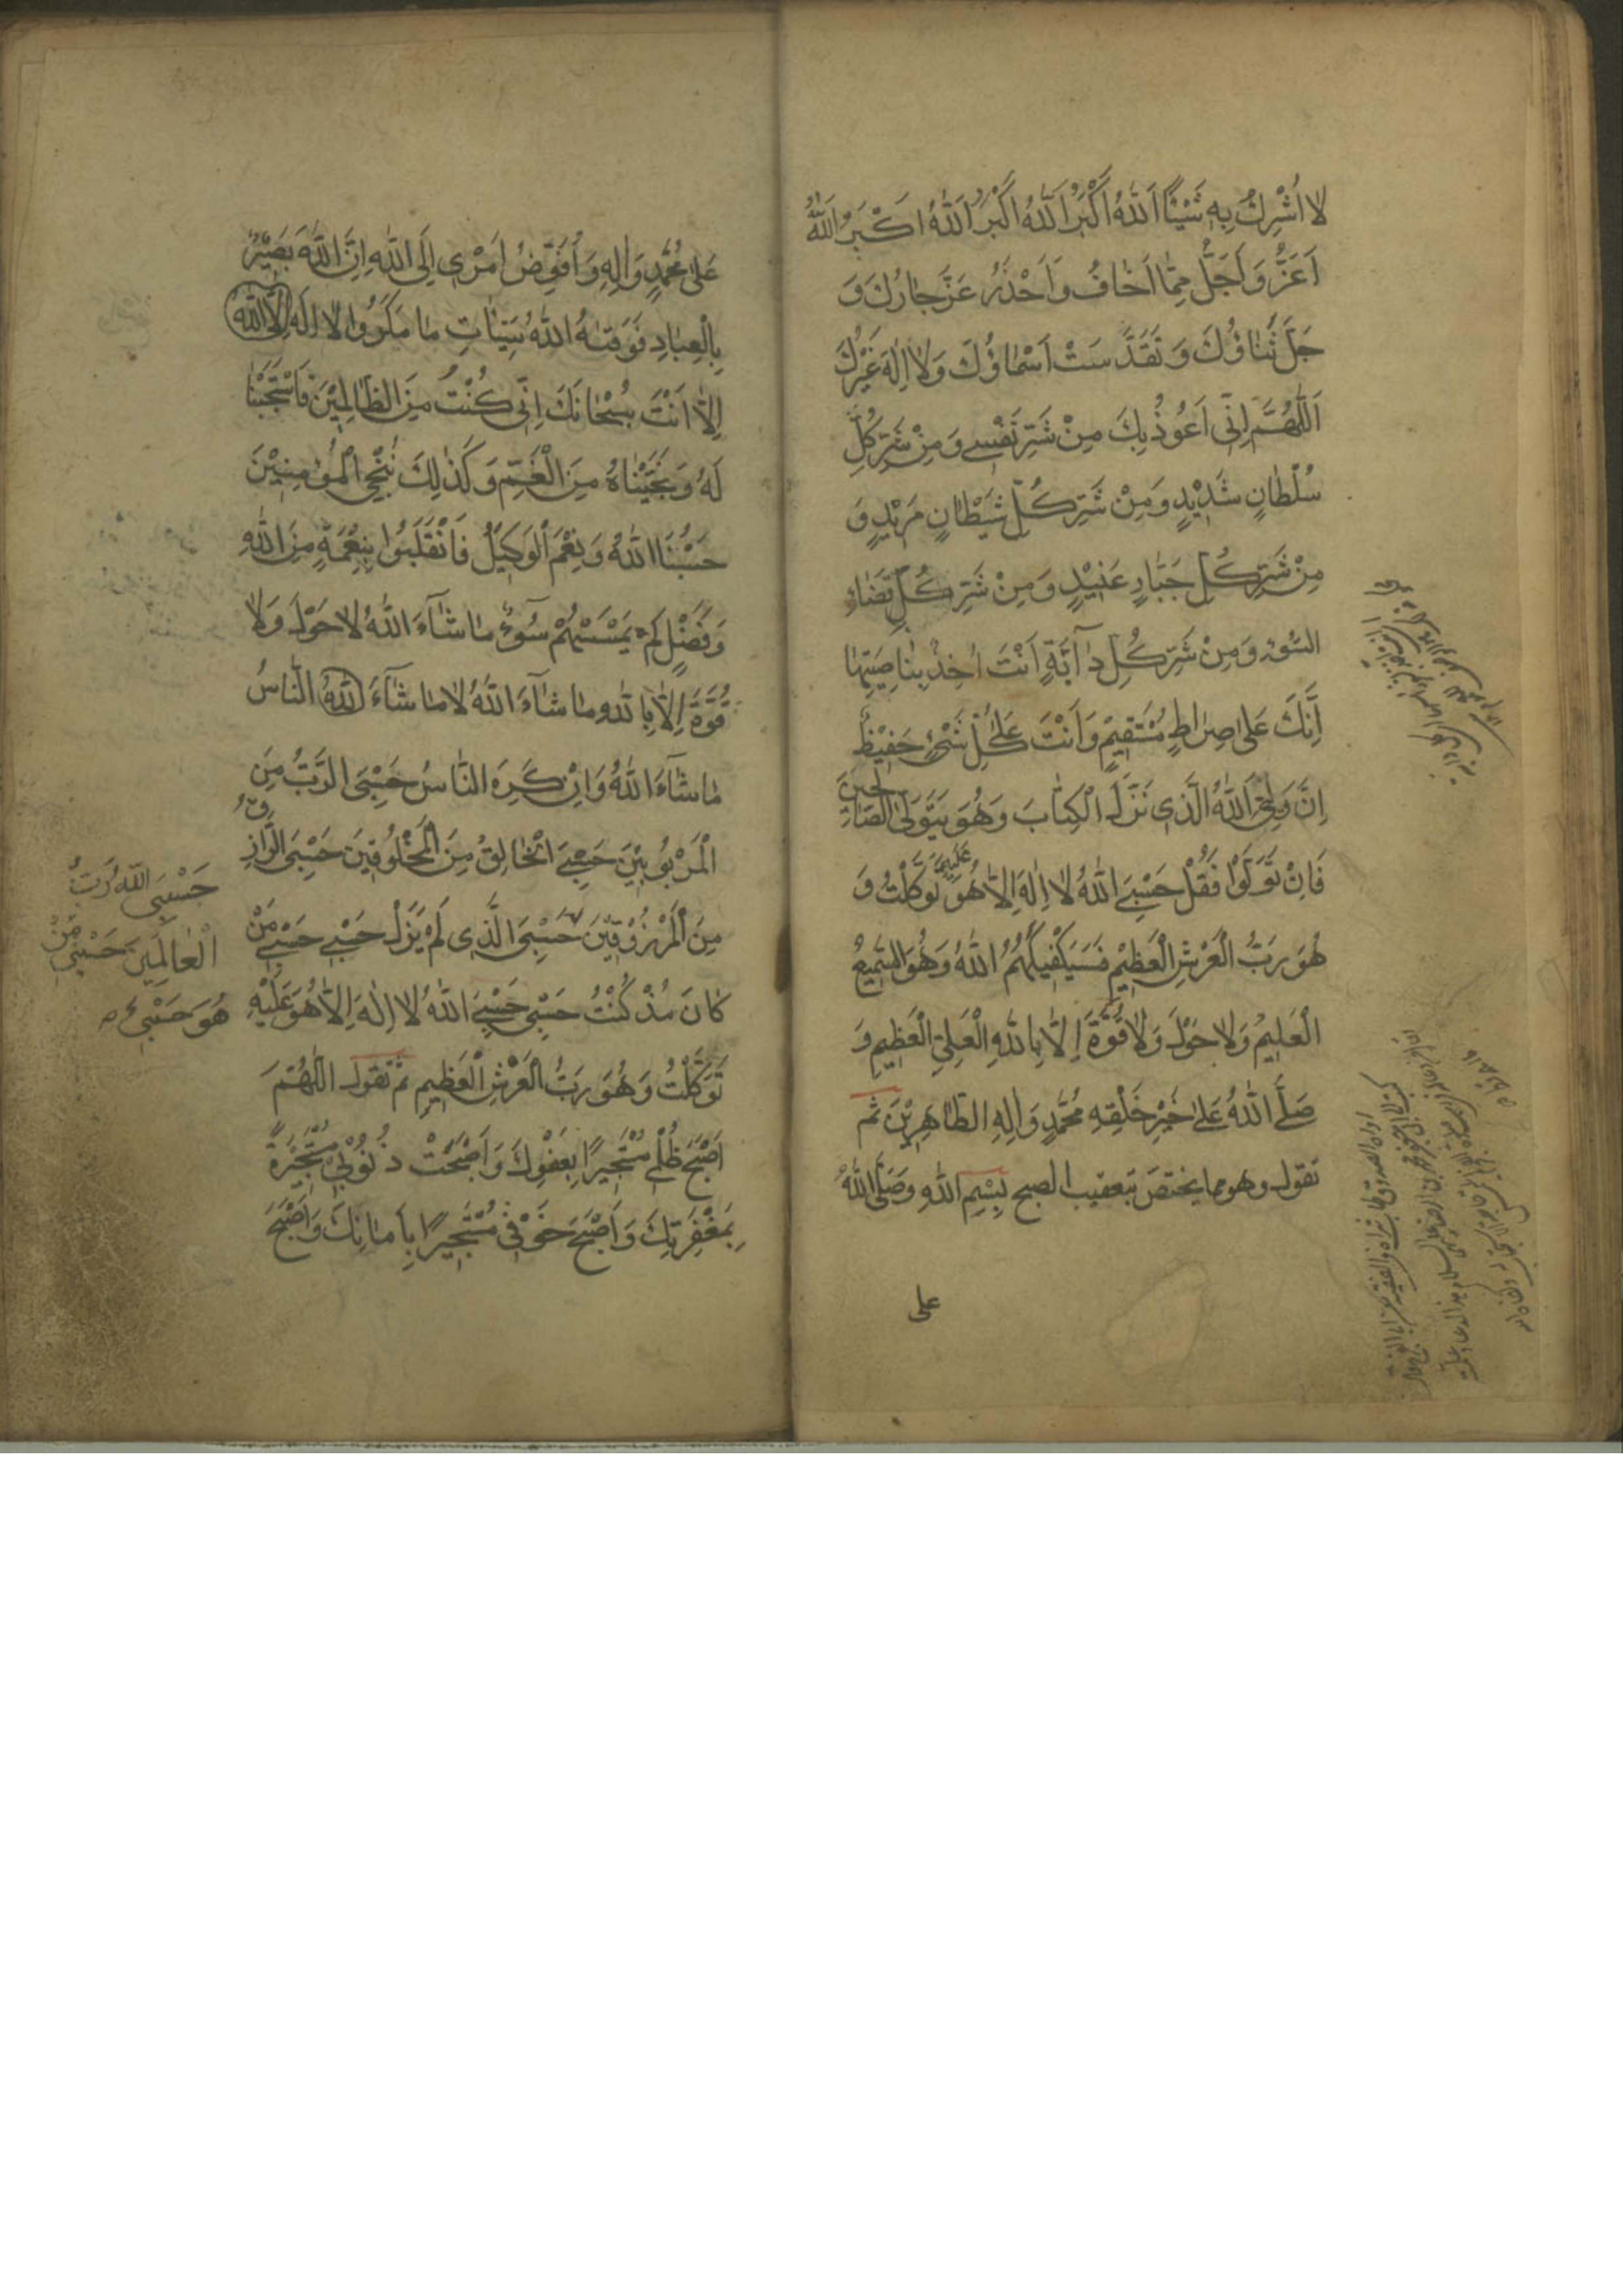 لَا اُشْرِكُ بِهِ شَيْئًا اَللّٰهُ اَكْبَرُ اَللّٰهُ اَكْبَرُ اَللّٰهُ اَكْبَرُ اَللّٰهُ
اَعَزُّ وَ اَجَلُّ مِمّٰا اَخٰافُ وَ اَحْذَرُ عَزَّ جٰارُكَ وَ
جَلَّ ثَنٰاؤُكَ وَ تَقَدَّسَتْ اَسْمٰاؤُكَ وَ لٰا اِلٰهَ غَيْرُكَ
اَللّٰهُمَّ اِنّٖى اَعُوذُ بِكَ مِنْ شَرِّ نَفْسٖى وَ مِنْ شَرِّ كُلِّ
سُلْطٰانٍ شَدٖيْدٍ وَ مِنْ شَرِّ كُلِّ شَيْطٰانٍ مَرٖيْدٍ وَ
مِنْ شَرِّ كُلِّ جَبّٰارٍ عَنٖيْدٍ وَ مِنْ شَرِّ كُلِّ قَضٰاءِ
السُّوْءِ وَ مِنْ شَرِّ كُلِّ دٰٓابَّةٍ اَنْتَ اٰخِذٌ بِنٰاصِيَتِهٰا
اِنَّكَ عَلىٰ صِرٰاطٍ مُسْتَقٖيْمٍ وَ اَنْتَ عَلىٰ كُلِّ شَىْءٍ حَفٖيْظٌ
اِنَّ وَلِيِّىَ اللّٰهُ الَّذٖى نَزَّلَ الْكِتٰابَ وَ هُوَ يَتَوَلَّى الصّٰالِحٖينَ
فَاِنْ تَوَلَّوْا فَقُلْ حَسْبِىَ اللّٰهُ لٰا اِلٰهَ اِلّٰا هُوَ عَلَيْهِ تَوَكَّلْتُ وَ
هُوَ رَبُّ الْعَرْشِ الْعَظٖيْمِ فَسَيَكْفٖيْكَهُمُ اللّٰهُ وَ هُوَ السَّمٖيعُ
الْعَلٖيْمُ وَ لٰا حَوْلَ وَ لٰا قُوَّةَ اِلّٰا بِاللّٰهِ الْعَلِىِّ الْعَظٖيمِ وَ
صَلَّى اللّٰهُ عَلىٰ خَيْرِ خَلْقِهٖ مُحَمَّدٍ وَ اٰلِهِ الطّٰاهِرٖيْنَ ثم
تقول وهو مما يختص بتعقيب الصبح بِسْمِ اللّٰهِ وَ صَلَّى اللّٰهُ
على
عَلىٰ مُحَمَّدٍ وَ اٰلِهٖ وَ اُفَوِّضُ اَمْرٖى اِلَى اللّٰهِ اِنَّ اللّٰهَ بَصٖيْرٌ
بِالْعِبٰادِ فَوَقٰىهُ اللّٰهُ سَيِّئٰاتِ مٰا مَكَرُوا لٰا اِلٰهَ اِلَّا اللّٰهُ
اِلّٰا اَنْتَ سُبْحٰانَكَ اِنّٖى كُنْتُ مِنَ الظّٰالِمٖيْنَ فَاسْتَجَبْنٰا
لَهُ وَ نَجَّيْنٰاهُ مِنَ الْغَمِّ وَ كَذٰلِكَ نُنْجِى الْمُؤْمِنٖيْنَ
حَسْبُنَا اللّٰهُ وَ نِعْمَ الْوَكٖيْلُ فَانْقَلَبُوْا بِنِعْمَةٍ مِنَ اللّٰهِ
وَ فَضْلٍ لَمْ يَمْسَسْهُمْ سُوٓءٌ مٰا شٰٓاءَ اللّٰهُ لٰا حَوْلَ وَ لٰا
قُوَّةَ اِلّٰا بِاللّٰهِ مٰا شٰٓاءَ اللّٰهُ لٰا مٰا شٰٓاءَ اللّٰهُ النّٰاسُ
مٰا شٰٓاءَ اللّٰهُ وَ اِنْ كَرِهَ النّٰاسُ حَسْبِىَ الرَّبُّ مِنَ
الْمَرْبُوبٖيْنَ حَسْبِىَ الْخٰالِقُ مِنَ الْمَخْلُوقٖينَ حَسْبِىَ الرّٰازِقُ
مِنَ الْمَرْزُوْقٖيْنَ حَسْبِىَ الَّذٖى لَمْ يَزَلْ حَسْبٖى حَسْبٖى مَنْ
كٰانَ مُذْ كُنْتُ حَسْبٖى حَسْبِىَ اللّٰهُ لٰا اِلٰهَ اِلّٰا هُوَ عَلَيْهِ
تَوَكَّلْتُ وَ هُوَ رَبُّ الْعَرْشِ الْعَظٖيمِ ثم تقول اَللّٰهُمَّ
اَصْبَحَ ظُلْمٖى مُسْتَجٖيرًا بِعَفْوِكَ وَ اَصْبَحَتْ ذُنُوْبٖى مُسْتَجٖيْرَةً
بِمَغْفِرَتِكَ وَ اَصْبَحَ خَوْفٖى مُسْتَجٖيرًا بِاَمٰانِكَ وَ اَصْبَحَ
حَسْبِىَ اللّٰهُ رَبُّ
الْعٰالَمٖينَ حَسْبٖى مَنْ
هُوَ حَسْبٖى